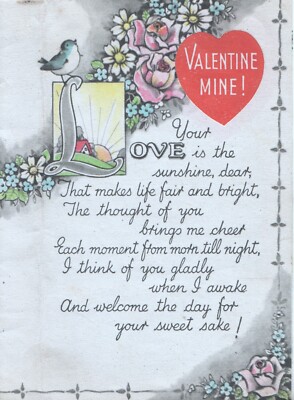 VALENTINE
MINE!
Your
LOVE is the
sunshine, dear,
That makes life fair and bright,
The thought of you
brings me cheer
Each moment from morn till night,
I think of you gladly
when I awake
And welcome the day for
your sweet sake!